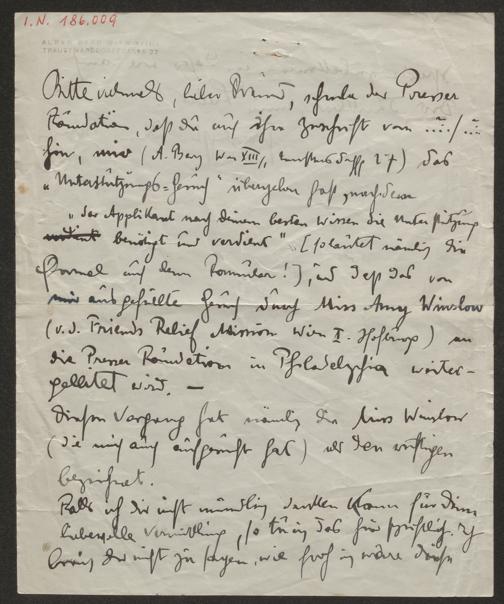 I.N. 186.009
Bitte vielmals, lieber Freund, schreibe der Presser
Foundation, daß du auf ihre Zuschrift vom ...../.....
hin, mir (A. Berg Wien XIII, Trauttmansdorffg. 27) das
"Unterstützungs-Gesuch" übergeben hast, nachdem
"der Applikant nach deinem besten Wissen die Unterstützung
benötigt und verdient" [so lautet nämlich die
Formel auf dem Formular!], und daß das von
mir ausgefüllte Gesuch durch Miss Amy Winslow
(v. d. Friends Relief Mission Wien I. Hofburg) an
die Presser Foundation in Philadelphia weiter-
geleitet wird. —
Diesen Vorgang hat nämlich die Miss Winslow
(die mich auch aufgesucht hat) als den richtigen
bezeichnet.
Falls ich dir nicht mündlich danken kann für deine
liebevolle Vermittlung, so tu ich das hier schriftlich. Ich
brauch dir nicht zu sagen, wie froh ich wäre diese